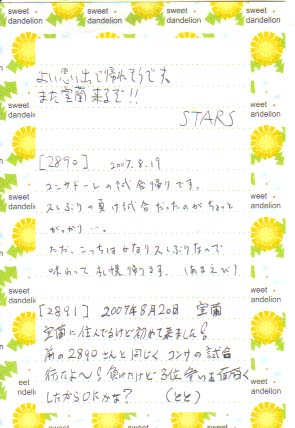 sweet dandelion
よい思い出で帰れそうです
また室蘭来るぞ!!
STARS
[2890] 2007.8.19
コンサドーレの試合帰りです。
久しぶりの負け試合だったのがちょっと
がっかり…。
ただ、こっちはかなり久しぶりなので
味わって札幌帰ります。(あまえび)
[2891] 2007年8月20日 室蘭
室蘭に住んでるけど初めて来ました!
前の2890さんと同じく コンサの試合
行ったよ〜! 負けたけど3位争いを面白く
したからOKかな? (とと)